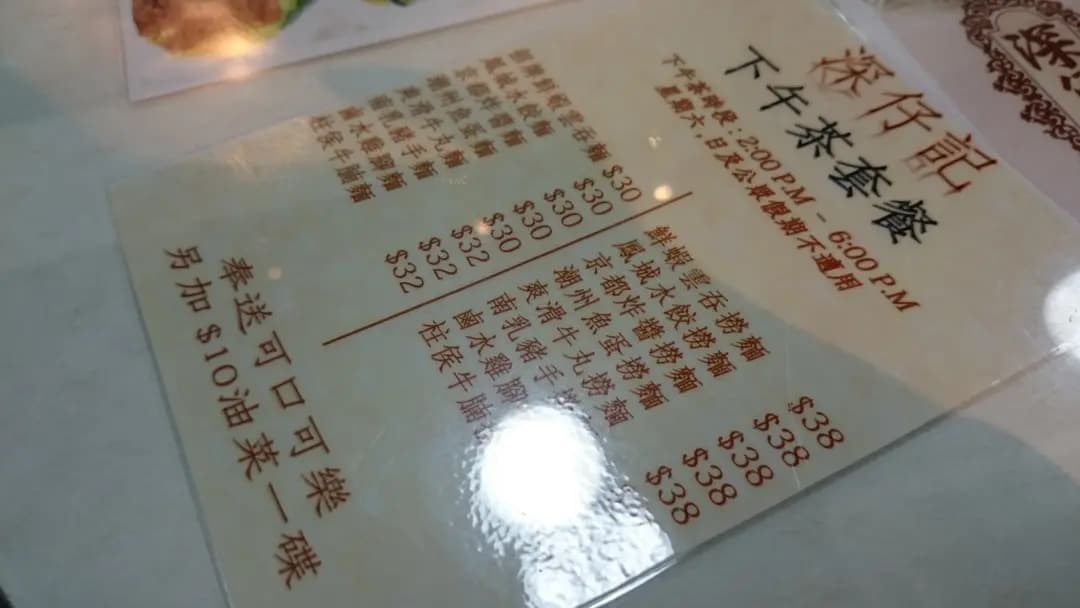 深仔記
下午茶套餐
下午茶時段 : 2:00 P.M – 6:00 P.M
星期六, 日及公眾假期不適用
鮮蝦雲吞麵 $30
鳳城水餃麵 $30
京都炸醬麵 $30
潮州魚蛋麵 $30
爽滑牛丸麵 $30
南乳豬手麵 $32
鹵水雞腳麵 $32
柱侯牛腩麵 $32
鮮蝦雲吞撈麵 $38
鳳城水餃撈麵 $38
京都炸醬撈麵 $38
潮州魚蛋撈麵 $38
爽滑牛丸撈麵 $38
南乳豬手
鹵水雞腳
柱侯牛腩
奉送可口可樂
另加 $10油菜一碟
深